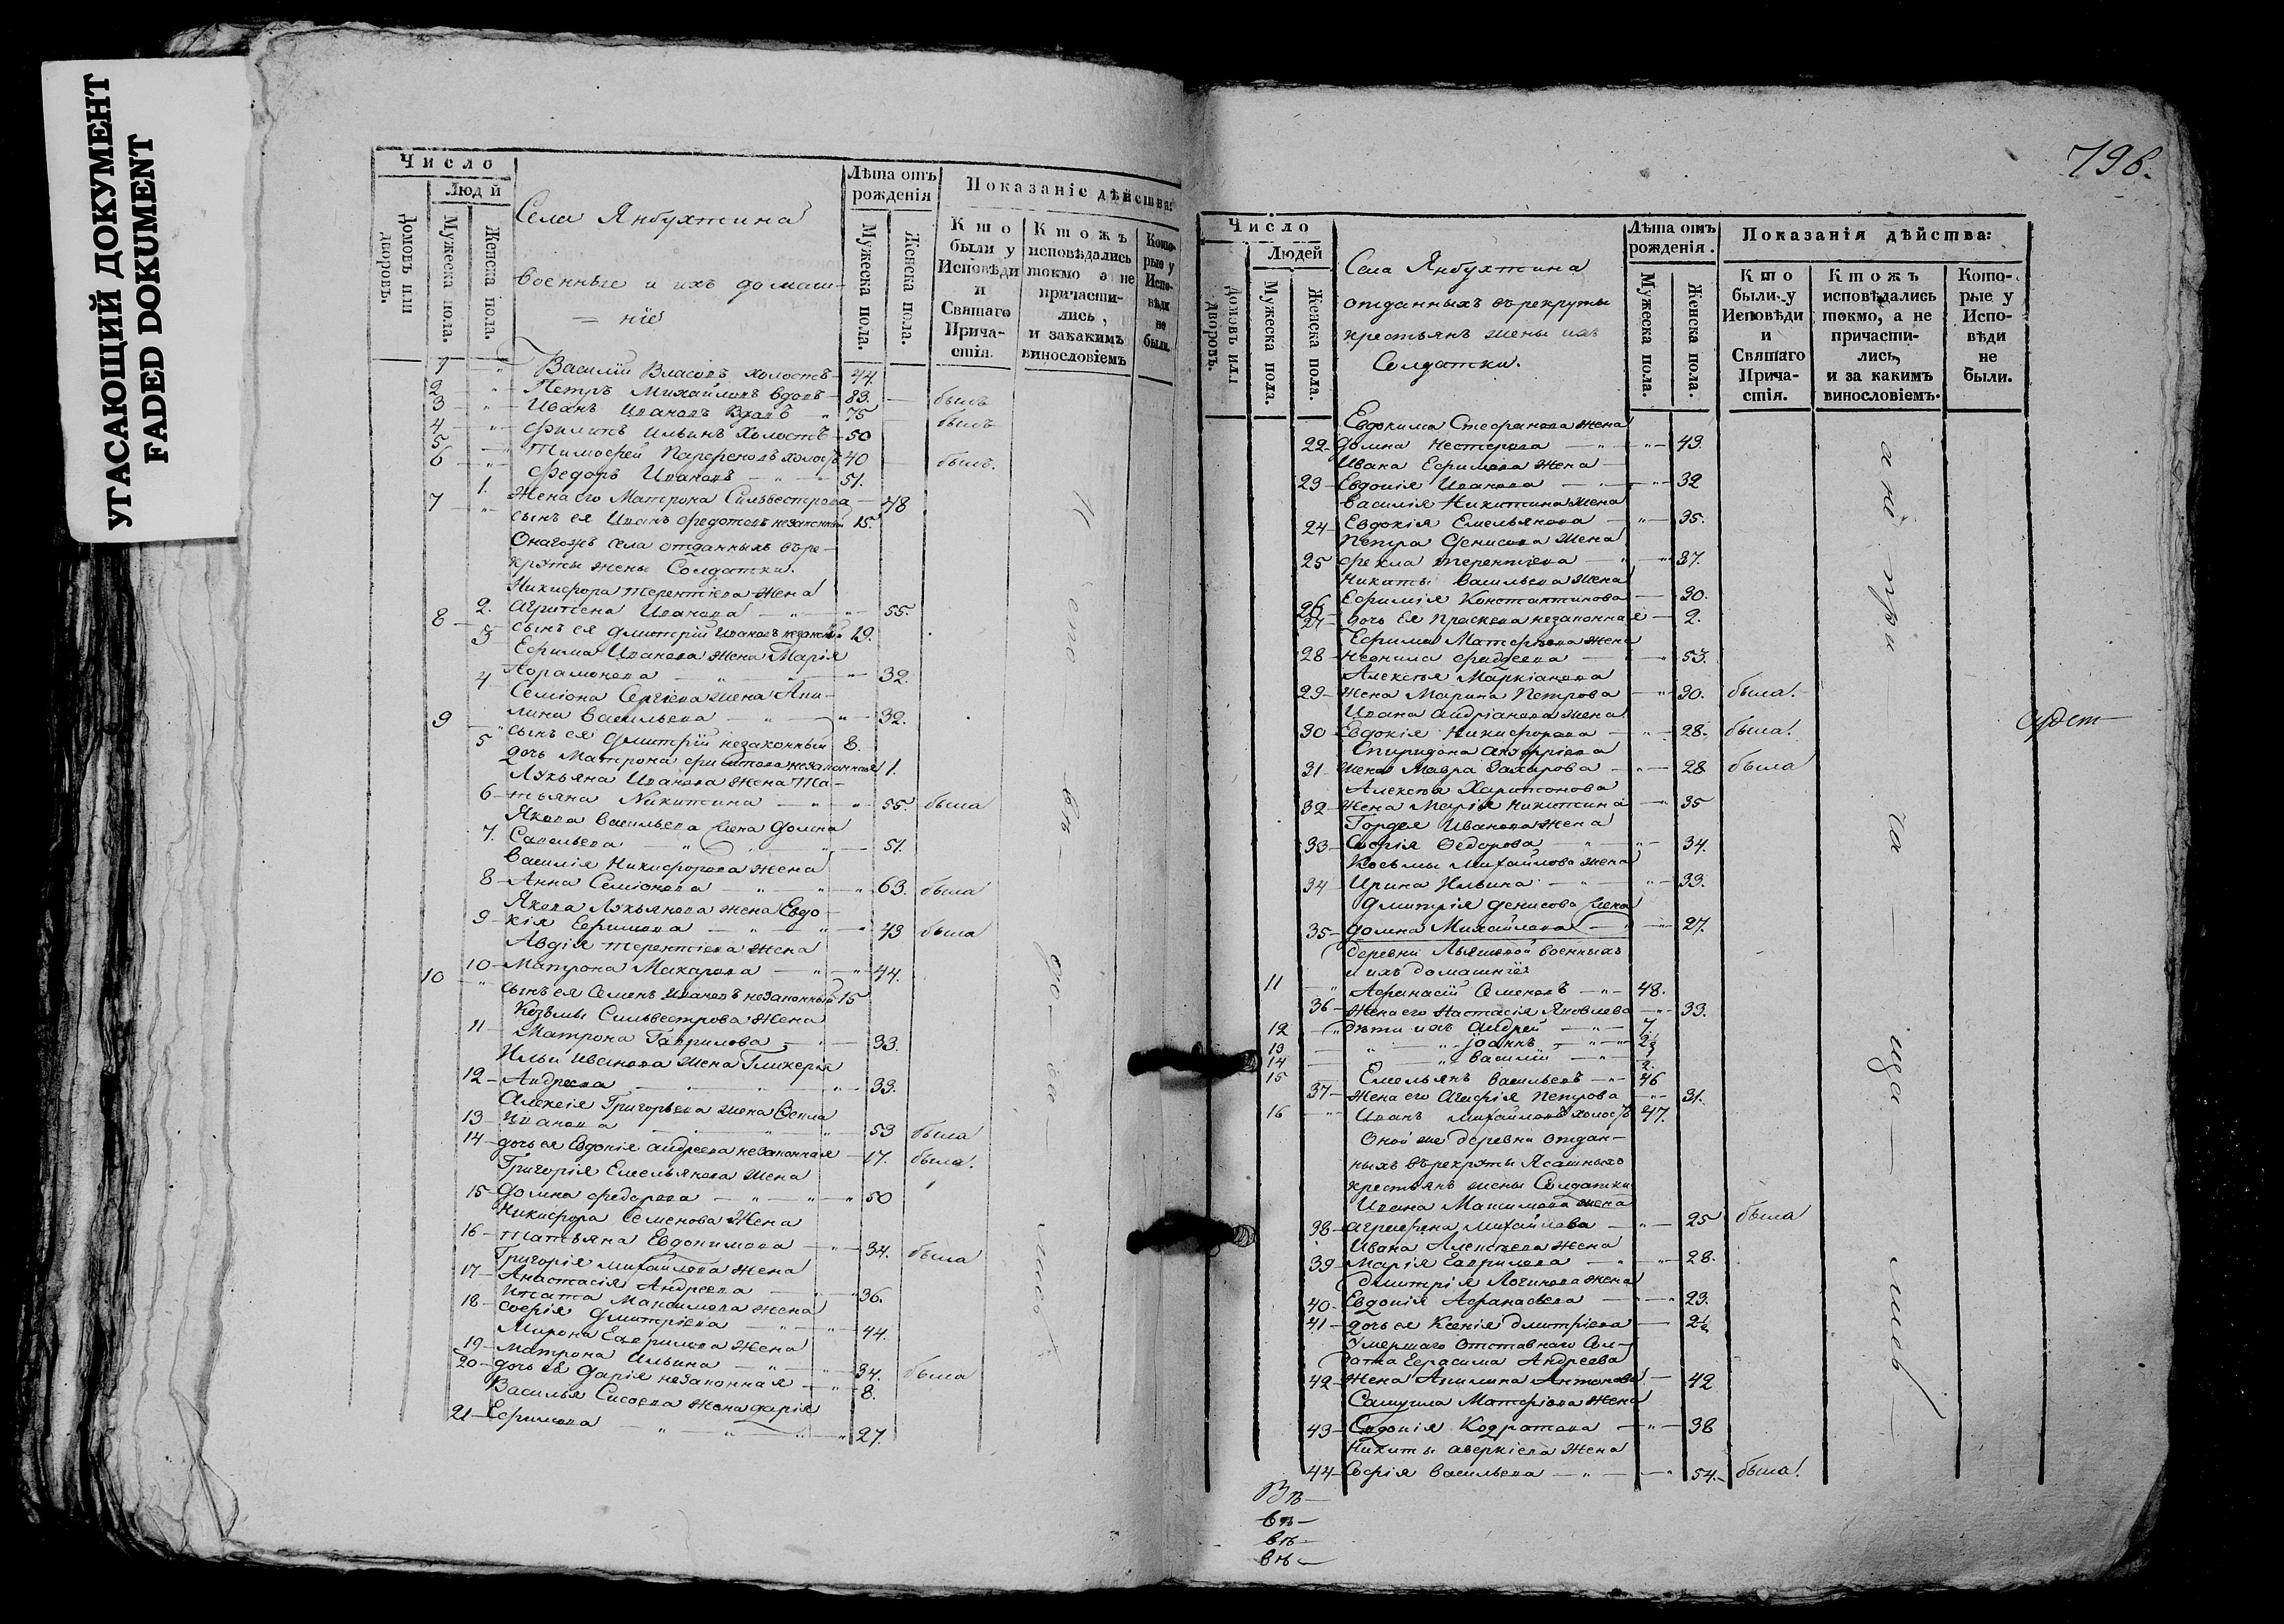 УГАСАЮЩИЙ ДОКУМЕНТ
FADED DOKUMENT
Число
Люд й
Домовъ или дворовъ.
Мужеска пола.
Женска пола.
Села Янбухтина
военные и ихъ домаш-
= ніе
Лѣта отъ рожденія
Мужеска пола.
Женска пола.
Показаніе дѣйства:
Кто были у Исповѣди и Святаго Прича-стія.
Ктожъ исповѣдались токмо а не причасти-лись, и закакимъ винословіемъ
Кото-рые у Испо-вѣди не были.
1 — " Василій Власовъ холостъ — 44.
2 " Петръ Михайловъ вдовъ — 83. — былъ
3 — " Иванъ Ивановъ Вдовъ " 75 — былъ
4 — " Филипъ Ильинъ Холостъ — 50
5 — " Тимофей Парфеновъ холостъ 40 — былъ.
6 — " Федоръ Ивановъ — " — 51.
1. Жена его Матрона Сильвестрова — 48
7 — " сынъ ея Иванъ Федотовъ незаконный 15.
Онагожъ села отданныхъ въ ре-
круты жены Солдатки.
Никифора Терентіева Жена
2. Агрипена Иванова — " — " — 55.
8 — сынъ ея Дмитрій Ивановъ незаконный 19.
3 Ефима Иванова жена Марія
Аврамонова — " — " — 32.
4 Семіона Сергіева жена Аку-
лина Васильева — " — " — 32.
9 — " сынъ ея Дмитрій незаконный 8.
5 дочь Матрона Филипова незаконная 1.
Лукьяна Иванова жена Та-
6 — тьяна Никитина — " — " 55. была
Якова Васильева Жена Домна
7. Савельева — " — " — 51.
Василія Никифорова жена
8 — Анна Семіонова — " — " — " 63. была
Якова Лукьянова жена Евдо-
9 — кія Ефимова — " — " — " 43 была
Авдія Терентіева жена
10 — Матрона Макарова — " — " — 44.
10 — " сынъ ея Семенъ Ивановъ незаконный 15
Козьмы Сильвестрова Жена
11 — Матрона Гаврилова — " — 33.
Ильи Иванова жена Гликерія
12 — Андреева — " — " — " 33.
Алексія Григорьева жена Фекла
13 — Иванова — " — " — 53 была
14 — дочь ея Евдокія Андреева незаконная — 17. была.
Григорія Емельянова жена
15 — Домна Федорова — " — " — " 50
Никифора Семенова Жена
16 — Татьяна Евдокимова — " — 34. была
Григорія Михайлова жена
17 — Анастасія Андреева — " — " 36.
Ипата Максимова жена
18 — Софія Дмитріева — " — " — 44.
Мирона Гаврилова Жена
19 — Матрона Ильина — " — " — 34. была
20 — дочь ея Дарія незаконная — " — 8.
Василья Сысоева жена Дарія
21 — Ефимова " — " — " — " 27.
796.
Число
Людей
Домовъ или дворовъ.
Мужеска пола.
Женска пола.
Села Янбухтина
отданныхъ въ рекруты
крестьянъ жены ихъ
Солдатки.
Лѣта отъ рожденія.
Мужеска пола.
Женска пола.
Показанія дѣйства:
Кто были у Исповѣди и Святаго Прича-стія.
Ктожъ исповѣдались токмо, а не причасти-лись, и за какимъ винословіемъ.
Кото-рые у Испо-вѣди не были.
Евдокима Стефанова жена
22 — Домна Нестерова — " — " — 43.
Ивана Ефимова жена —
23 — Евдокія Иванова — " — 32
Василія Никитина жена
24 — Евдокія Емельянова — " — 35.
Петра Денисова жена
25 Фекла Терентіева — " — " 37.
Никиты Васильева жена
26 Ефимія Константинова — 30.
27 — дочь Ея Прасковія незаконная — 2.
Ефима Матфѣева жена
28 — Неонила Фадѣева — " — 53.
Алексѣя Маркіанова
29 — Жена Марина Петрова — " — 30. была.
Ивана Андріанова жена
30 — Евдокія Никифорова — " — 28. была.
Спиридона Ануфріева
31 — жена Мавра Захарова — " — 28 была
Алексѣя Харитонова
32 — Жена Марія Никитина — " 35
Гордея Иванова Жена
33 — Софія Ѳедорова — " — " — 34.
Косьмы Михайлова жена
34 — Ирина Ильина — " — " — 33.
Дмитрія Денисова жена
35 — Домна Михайлова — " — 27.
Деревни Льяшевой военныхъ
и ихъ домашніе
11 — " Афанасій Семеновъ — " — 48.
36 — Жена его Настасія Яковлева — " — 33.
12 — " Дѣти ихъ Андрей — " — 7.
13 — " — " Іоаннъ — " — " — 2½
14 — " Василій — " — ½
15 — Емельянъ Васильевъ — " — 46
37 — Жена его Агафія Петрова — " — 31.
16 — " Иванъ Михайловъ холостъ 47.
Оной же деревни отдан-
ныхъ въ рекруты Ясашныхъ
крестьянъ жены Солдатки
Ивана Максимова жена
38 — Агрипена Михайлова — " — 25 была
Ивана Алексѣева жена
39 — Марія Гаврилова — " — " 28.
Дмитрія Логинова жена
40 — Евдокія Афанасьева — " — 23.
41 — дочь ея Ксенія Дмитріева — 2½
Умершаго Отставнаго Сол-
дата Герасима Андреева
42 — Жена Акилина Антонова — 42
Самуила Матфіева жена
43 — Евдокія Кодратова — " — 38
Никиты Аверкіева жена
44 — Софія Васильева — " — " 54. — была.